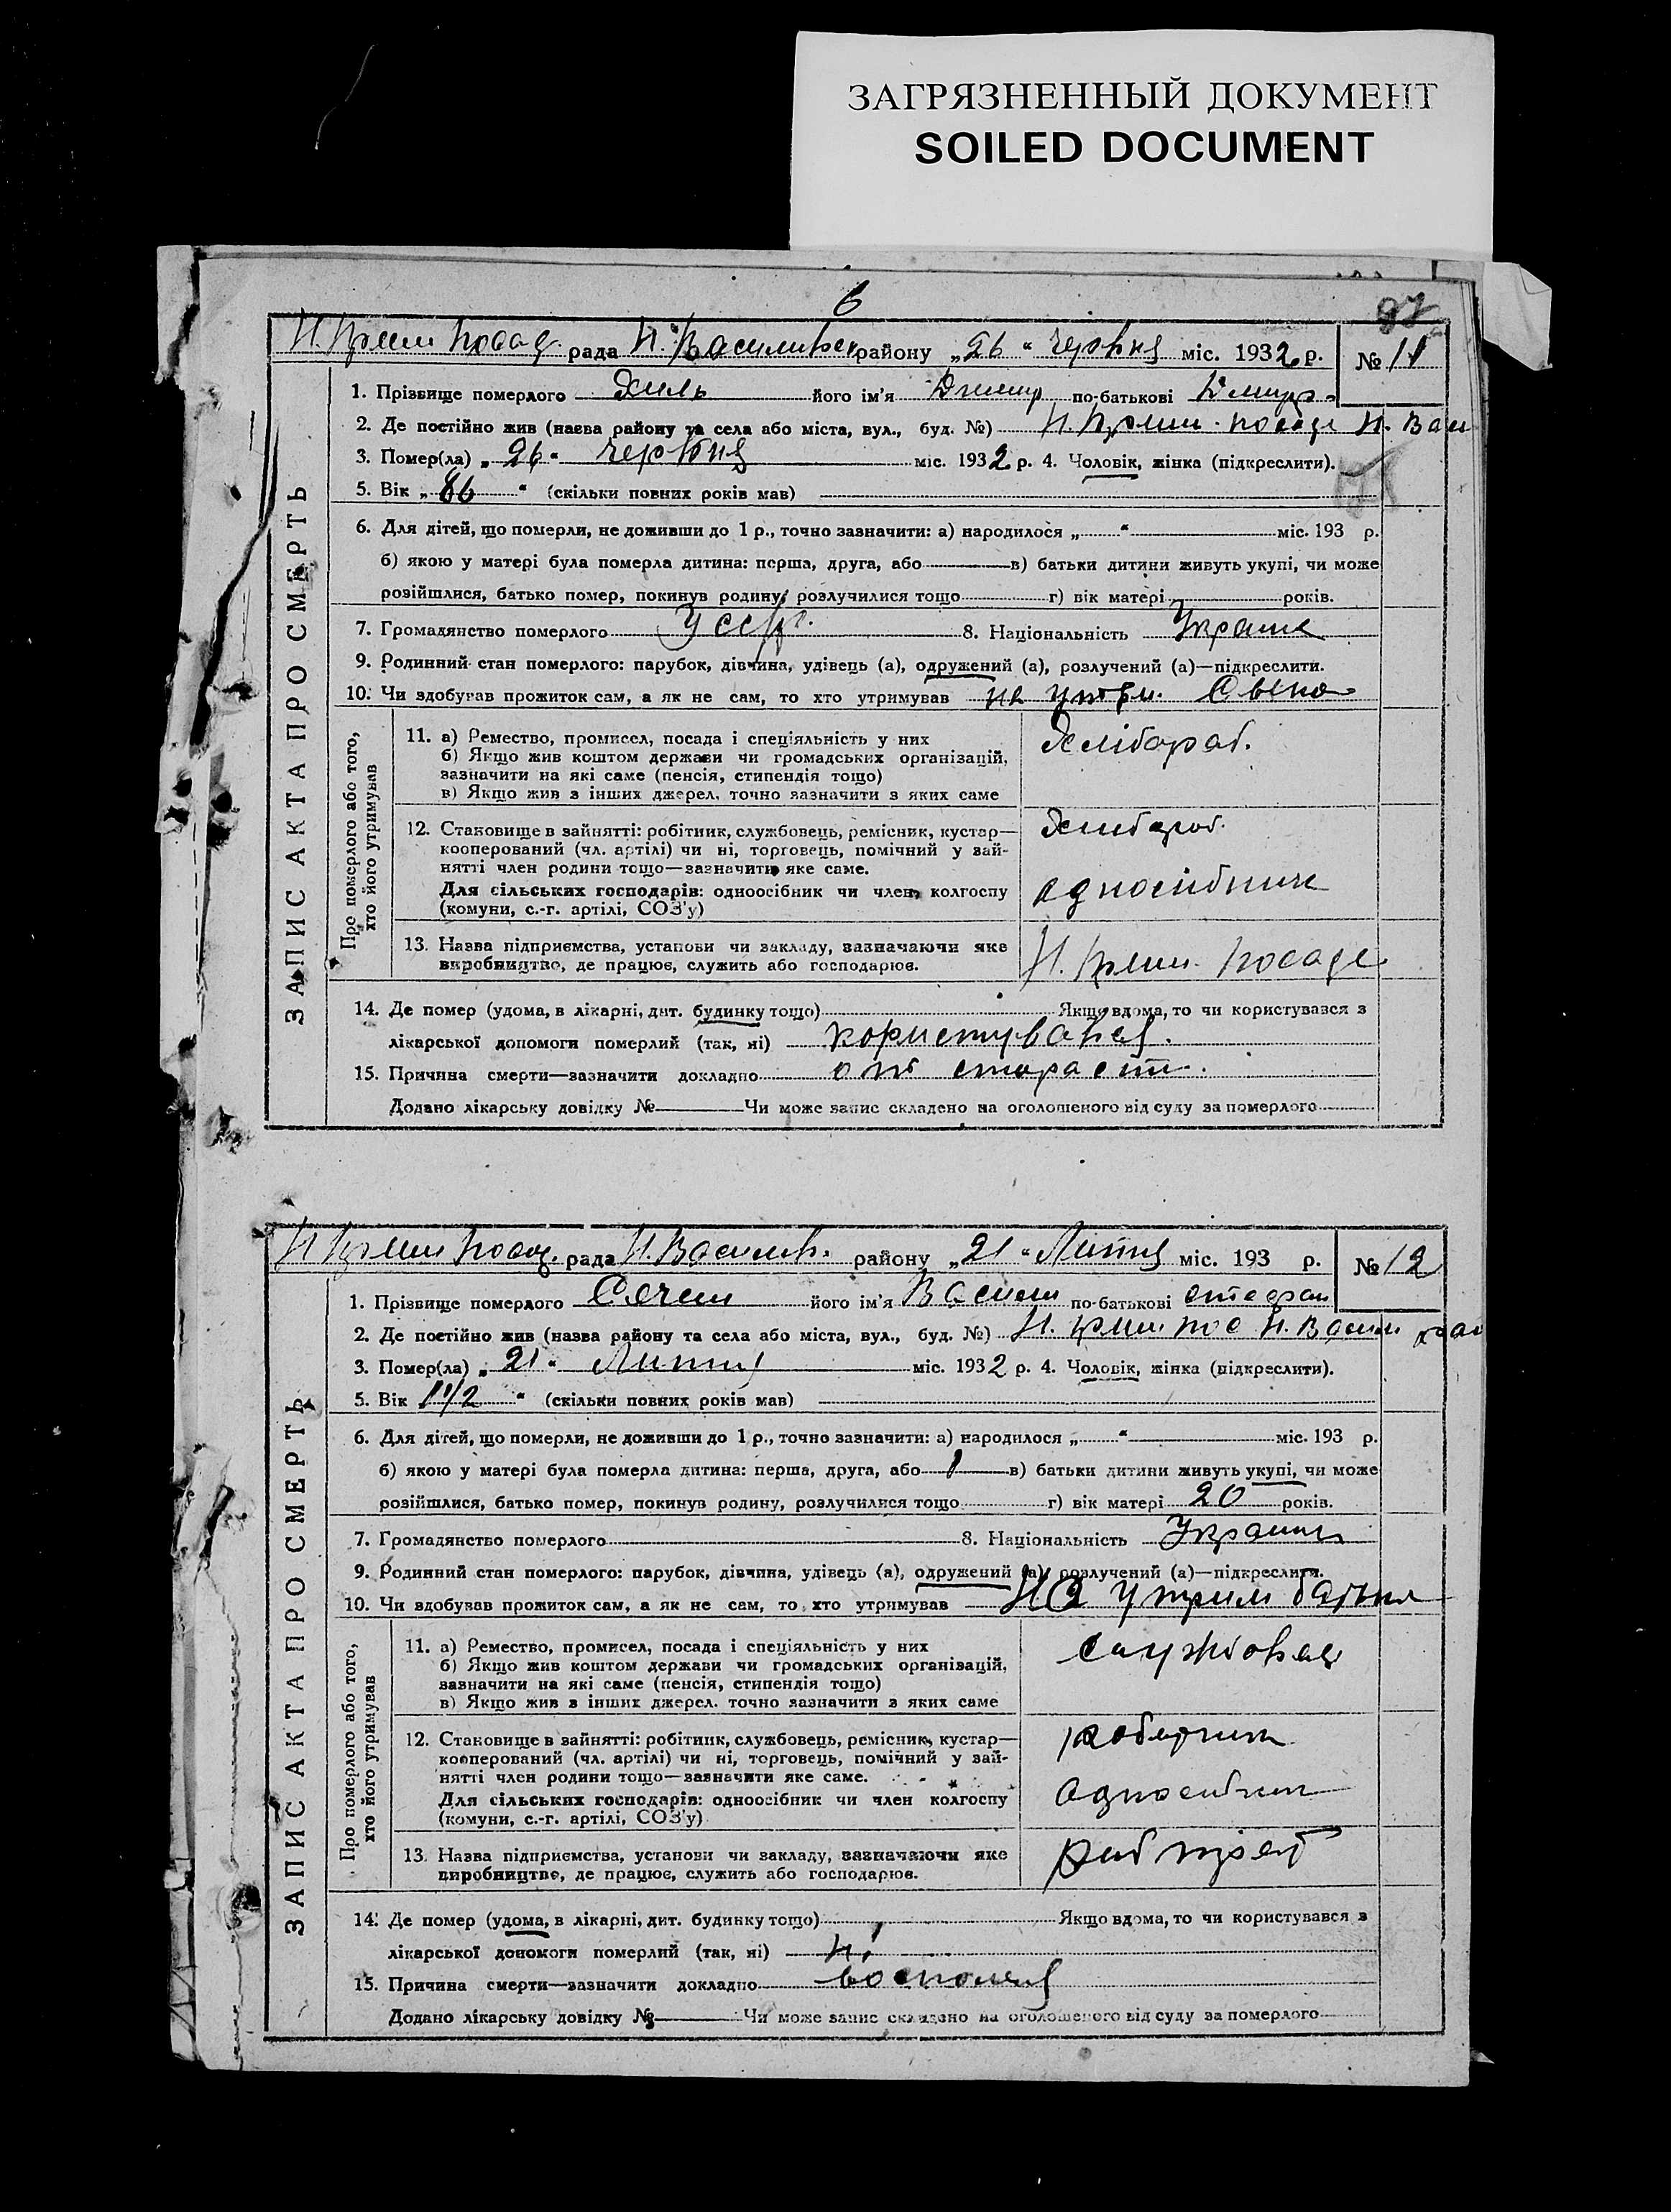 ЗАГРЯЗНЕННЫЙ ДОКУМЕНТ
SOILED DOCUMENT
6
97
рада Н. Василивськ району „26“ червня міс. 1932 р. № 11
ЗАПИС АКТА ПРО СМЕРТЬ
1. Прізвище померлого Хиль його ім'я по-батькові
2. Де постійно жив (назва району та села або міста, вул., буд. №)
3. Помер(ла) „26“ червня міс. 1932 р. 4. Чоловік, жінка (підкреслити).
5. Вік „86“ (скільки повних років мав)
6. Для дітей, що померли, не доживши до 1 р., точно зазначити: а) народилося „ “ міс. 193 р.
б) якою у матері була померла дитина: перша, друга, або в) батьки дитини живуть укупі, чи може
розійшлися, батько помер, покинув родину, розлучилися тощо г) вік матері років.
7. Громадянство померлого УССР. 8. Національність Украине
9. Родинний стан померлого: парубок, дівчина, удівець (а), одружений (а), розлучений (а)—підкреслити.
10. Чи здобував прожиток сам, а як не сам, то хто утримував на утри. Сына
Про померлого або того, хто його утримував
11. а) Ремество, промисел, посада і спеціяльність у них Хлібороб.
б) Якщо жив коштом держави чи громадських організацій,
зазначити на які саме (пенсія, стипендія тощо)
в) Якщо жив з інших джерел, точно зазначити з яких саме
12. Становище в зайнятті: робітник, службовець, ремісник, кустар— Хлибороб.
кооперований (чл. артілі) чи ні, торговець, помічний у зай-
нятті член родини тощо—зазначити яке саме.
Для сільських господарів: одноосібник чи член колгоспу односибник
(комуни, с.-г. артілі, СОЗ'у)
13. Назва підприємства, установи чи закладу, зазначаючи яке
виробництво, де працює, служить або господарює.
14. Де помер (удома, в лікарні, дит. будинку тощо) Якщо вдома, то чи користувався з
лікарської допомоги померлий (так, ні) користувався.
15. Причина смерти—зазначити докладно от старост.
Додано лікарську довідку № Чи може запис складено на оголошеного від суду за померлого
рада Н. Василив. району „21“ Липня міс. 193 р. № 12
ЗАПИС АКТА ПРО СМЕРТЬ
1. Прізвище померлого його ім'я Васили по-батькові стефан
2. Де постійно жив (назва району та села або міста, вул., буд. №)
3. Помер(ла) „21“ Липня міс. 1932 р. 4. Чоловік, жінка (підкреслити).
5. Вік 1 1/2 “ (скільки повних років мав)
6. Для дітей, що померли, не доживши до 1 р., точно зазначити: а) народилося „ “ міс. 193 р.
б) якою у матері була померла дитина: перша, друга, або 1 в) батьки дитини живуть укупі, чи може
розійшлися, батько помер, покинув родину, розлучилися тощо г) вік матері 20 років.
7. Громадянство померлого 8. Національність Украинц
9. Родинний стан померлого: парубок, дівчина, удівець (а), одружений (а), розлучений (а)—підкреслити.
10. Чи здобував прожиток сам, а як не сам, то хто утримував На утрим батьки
Про померлого або того, хто його утримував
11. а) Ремество, промисел, посада і спеціяльність у них службовец
б) Якщо жив коштом держави чи громадських організацій,
зазначити на які саме (пенсія, стипендія тощо)
в) Якщо жив з інших джерел, точно зазначити з яких саме
12. Становище в зайнятті: робітник, службовець, ремісник, кустар— робитник
кооперований (чл. артілі) чи ні, торговець, помічний у зай-
нятті член родини тощо—зазначити яке саме.
Для сільських господарів: одноосібник чи член колгоспу односибник
(комуни, с.-г. артілі, СОЗ'у)
13. Назва підприємства, установи чи закладу, зазначаючи яке
виробництво, де працює, служить або господарює.
14. Де помер (удома, в лікарні, дит. будинку тощо) Якщо вдома, то чи користувався з
лікарської допомоги померлий (так, ні) ні
15. Причина смерти—зазначити докладно
Додано лікарську довідку № Чи може запис складено на оголошеного від суду за померлого